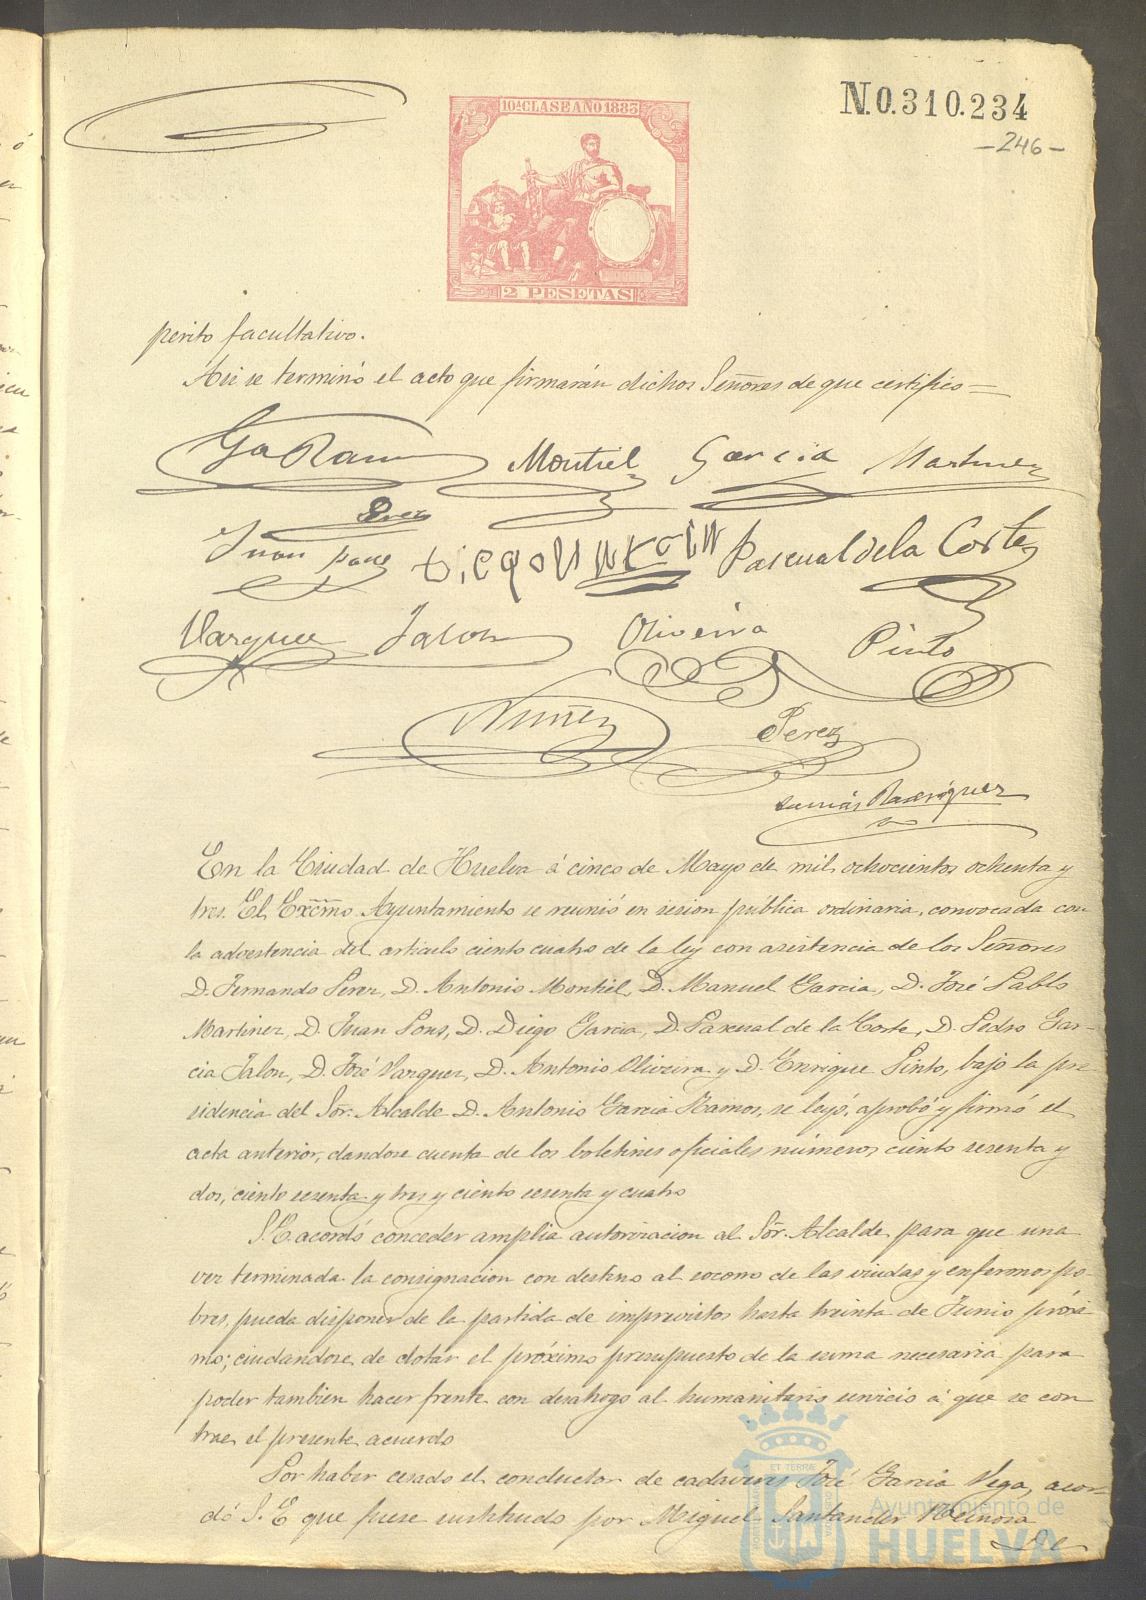 10ª CLASE AÑO 1883
N.0.310.234
-246-
2 PESETAS
perito facultativo.
Asi se terminó el acto que firmarán dichos Señores de que certifico=
Ga Ram Montiel Garcia Martinez
Perez
Juan pons Diego Garcia Pascual de la Corte
Vazquez Jalon Oliveira Pinto
Nuñez Perez
Tomás Rodriguez
En la Ciudad de Huelva á cinco de Mayo de mil ochocientos ochenta y
tres. El Excmo. Ayuntamiento se reunió en sesion pública ordinaria, convocada con
la advertencia del articulo ciento cuatro de la ley con asistencia de los Señores
D. Fernando Perez, D. Antonio Montiel, D. Manuel Garcia, D. José Pablo
Martinez, D. Juan Pons, D. Diego Garcia, D. Pascual de la Corte, D. Pedro Gar-
cia Jalon, D. José Vazquez, D. Antonio Oliveira y D. Enrique Pinto, bajo la pre-
sidencia del Sor. Alcalde D. Antonio Garcia Ramos, se leyó, aprobó y firmó el
acta anterior, dandose cuenta de los boletines oficiales números ciento sesenta y
dos, ciento sesenta y tres y ciento sesenta y cuatro
S.E. acordó conceder amplia autorizacion al Sor. Alcalde para que una
vez terminada la consignacion con destino al socorro de las viudas y enfermos po-
bres, pueda disponer de la partida de imprevistos hasta treinta de Junio próxi
mo; ciudandose de dotar el próximo presupuesto de la suma necesaria para
poder tambien hacer frente con desahogo al humanitario servicio á que se con
trae el presente acuerdo
Por haber cesado el conductor de cadáveres José Garcia Vega, acor-
dó S.E que fuese sustituido por Miguel Santander Reinosa
De
Ayuntamiento de
HUELVA